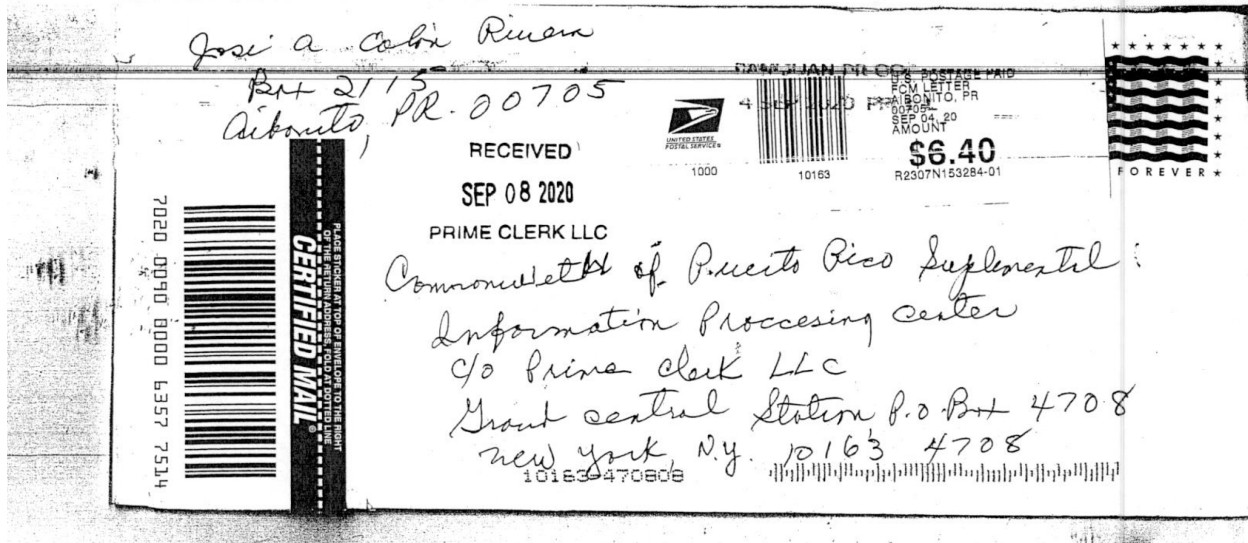 Jose a Colon Rivera
Box 2115
Aibonito, PR. 00705
RECEIVED
SEP 08 2020
PRIME CLERK LLC
SAN JUAN PR
4 SEP 2020
UNITED STATES
POSTAL SERVICE®
1000
10163
U.S. POSTAGE PAID
FCM LETTER
AIBONITO, PR
00705
SEP 04, 20
AMOUNT
$6.40
R2307N153284-01
FOREVER
7020 0090 0000 6357 7514
PLACE STICKER AT TOP OF ENVELOPE TO THE RIGHT
OF THE RETURN ADDRESS, FOLD AT DOTTED LINE
CERTIFIED MAIL®
Commonwelth of Puerto Rico Suplemental
Information Proccesing center
c/o Prime clerk LLC
Grand central Station P.O. Box 4708
new york, N.Y. 10163 4708
10163-470808